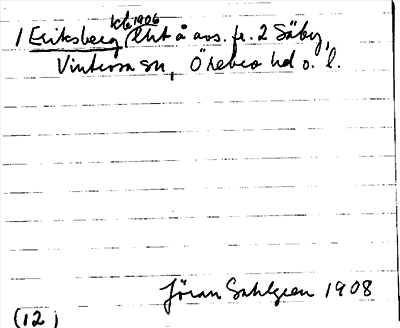 kb 1906
1 Eriksberg, lht å avs. fr. 2 Säby,
Vintrosa sn, Örebro hd o. l.
Jöran Sahlgren 1908
(12)